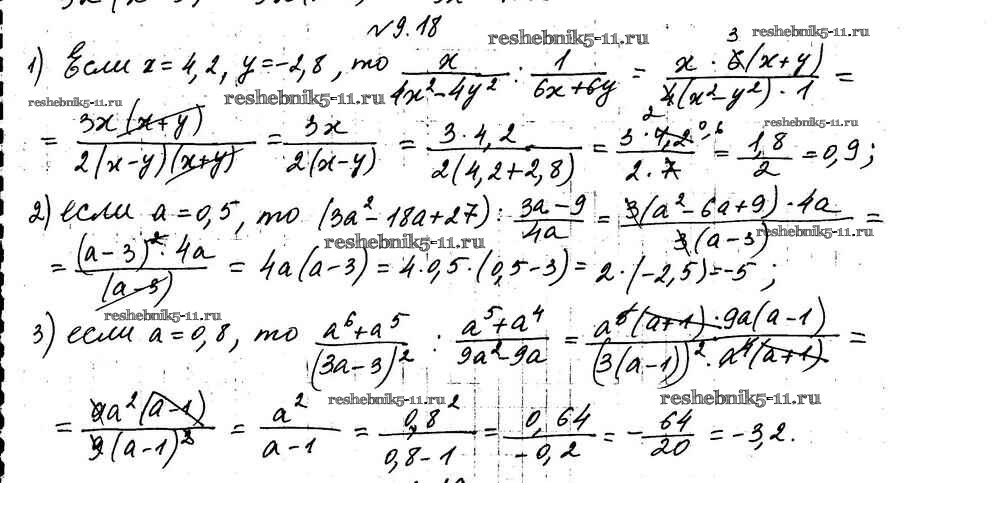 №9.18
reshebnik5-11.ru
1) Если x = 4,2, y = -2,8, то x/(4x² - 4y²) : 1/(6x + 6y) = (x · 6(x + y))/(4(x² - y²) · 1) =
reshebnik5-11.ru reshebnik5-11.ru
reshebnik5-11.ru
= 3x(x + y)/(2(x - y)(x + y)) = 3x/(2(x - y)) = (3 · 4,2)/(2(4,2 + 2,8)) = (3 · 4,2)/(2 · 7) = 1,8/2 = 0,9;
2) если a = 0,5, то (3a² - 18a + 27) : (3a - 9)/(4a) = (3(a² - 6a + 9) · 4a)/(3(a - 3)) =
reshebnik5-11.ru reshebnik5-11.ru
= ((a - 3)² · 4a)/(a - 3) = 4a(a - 3) = 4 · 0,5 · (0,5 - 3) = 2 · (-2,5) = -5;
reshebnik5-11.ru
3) если a = 0,8, то (a⁶ + a⁵)/(3a - 3)² : (a⁵ + a⁴)/(9a² - 9a) = (a⁵(a + 1) · 9a(a - 1))/((3(a - 1))² · a⁴(a + 1)) =
reshebnik5-11.ru reshebnik5-11.ru
= 9a²(a - 1)/(9(a - 1)²) = a²/(a - 1) = 0,8²/(0,8 - 1) = 0,64/(-0,2) = -64/20 = -3,2.